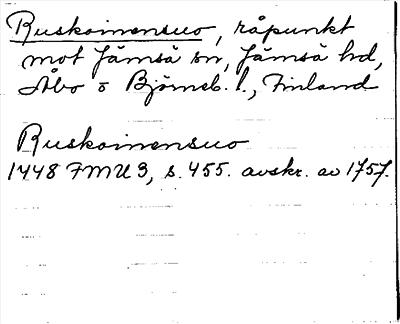 Ruskoinensuo, råpunkt
mot Jämsä sn, Jämsä hd,
Åbo o Björneb. l., Finland
Ruskoinensuo
1448 FMU 3, s. 455. avskr. av 1757.